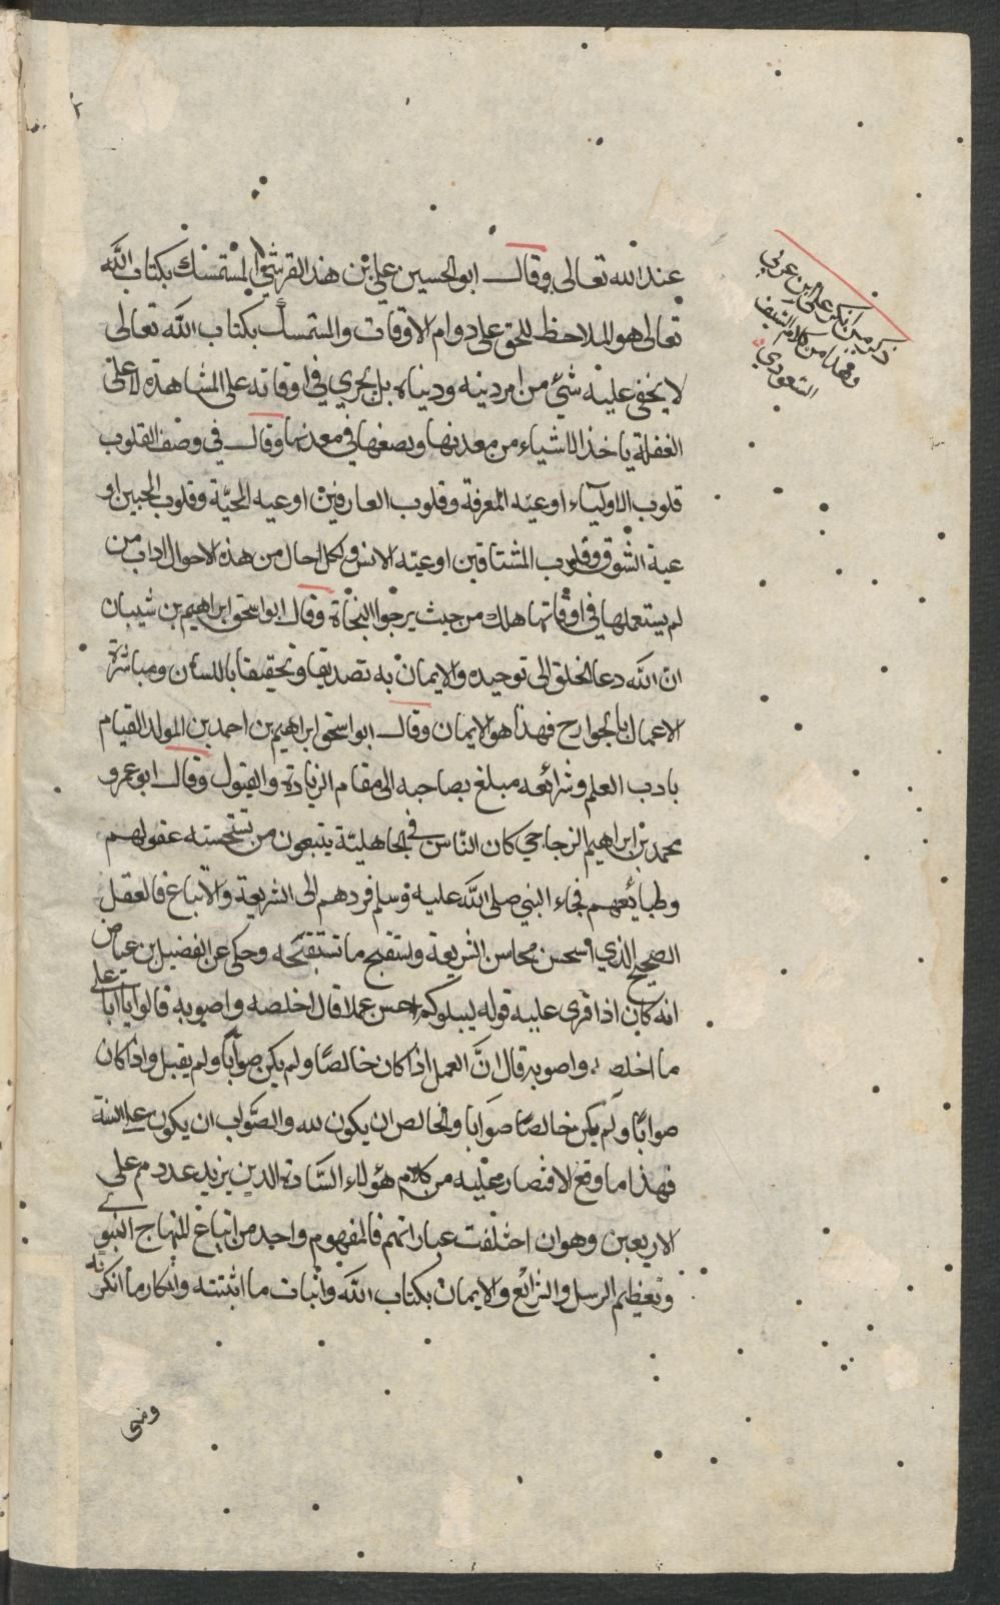 عند الله تعالى وقال ابو الحسين علي بن هند القرشي المستمسك بكتاب الله
تعالى هو الملاحظ للحق على دوام الاوقات والمستمسك بكتاب الله تعالى
لا يخفى عليه شيء من امر دينه ودنياه بل يجري في اوقاته على المشاهدة لا على
الغفلة ياخذ الاشياء من معدنها ويصغها في معدنها وقال في وصف القلوب
قلوب الاولياء اوعية المعرفة وقلوب العارفين اوعيه المحبة وقلوب المحبين او
عية الشوق وقلوب المشتاقين اوعية الانس ولكل حال من هذه الاحوال اداب من
لم يستعملها في اوقاتها هلك من حيث يرجوا النجاة وقال ابو اسحق ابراهيم بن شيبان
ان الله دعا الخلق الى توحيده والايمان به تصديقا وتحقيقا باللسان ومباشرة
الاعمال بالجوارح فهذا هو الايمان وقال ابو اسحق ابراهيم بن احمد بن المولد القيام
بادب العلم وشرائعه مبلغ بصاحبه الى مقام الزيادة والقبول وقال ابو عمرو
محمد بن ابراهيم الزجاجي كان الناس في الجاهلية يتبعون من تستحسنه عقولهم
وطبايعهم فجاء النبي صلى الله عليه وسلم فردهم الى الشريعة والاتباع فالعقل
الصحيح الذي يستحسن محاسن الشريعة ويستقبح ما تستقبحه وحكي عن الفضيل بن عياض
انه كان اذا قرى عليه قوله ليبلوكم احسن عملا قال اخلصه واصوبه قالوا يا ابا علي
ما اخلصه واصوبه قال ان العمل اذا كان خالصا ولم يكن صوابا ولم يقبل واذا كان
صوابا ولم يكن خالصا صوابا والخالص ان يكون لله والصواب ان يكون على السنة
فهذا ما وقع الاقتصار عليه من كلام هؤلاء السادة الذين يزيد عددهم على
الاربعين وهو ان اختلفت عباراتهم فالمفهوم واحد من اتباع المنهاج النبوي
وتعظيم الرسل والشرائع والايمان بكتاب الله واثبات ما اثبتته وانكار ما انكرته
ونفي
ذكر من انكر على ابن عربي
وهذا من كلام الشيخ
السعودي